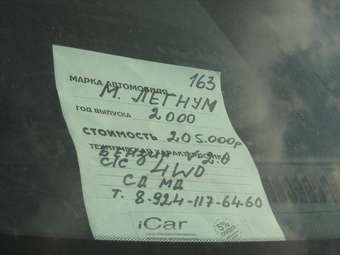 163
МАРКА АВТОМОБИЛЯ
М. ЛЕГНУМ
ГОД ВЫПУСКА 2000
СТОИМОСТЬ 205.000р
ТЕХНИЧЕСКАЯ ХАРАКТЕРИСТИКА
БЕНЗИН V 2.0
4WD
СД МД
Т. 8-924-117-64-60
iCar
5%